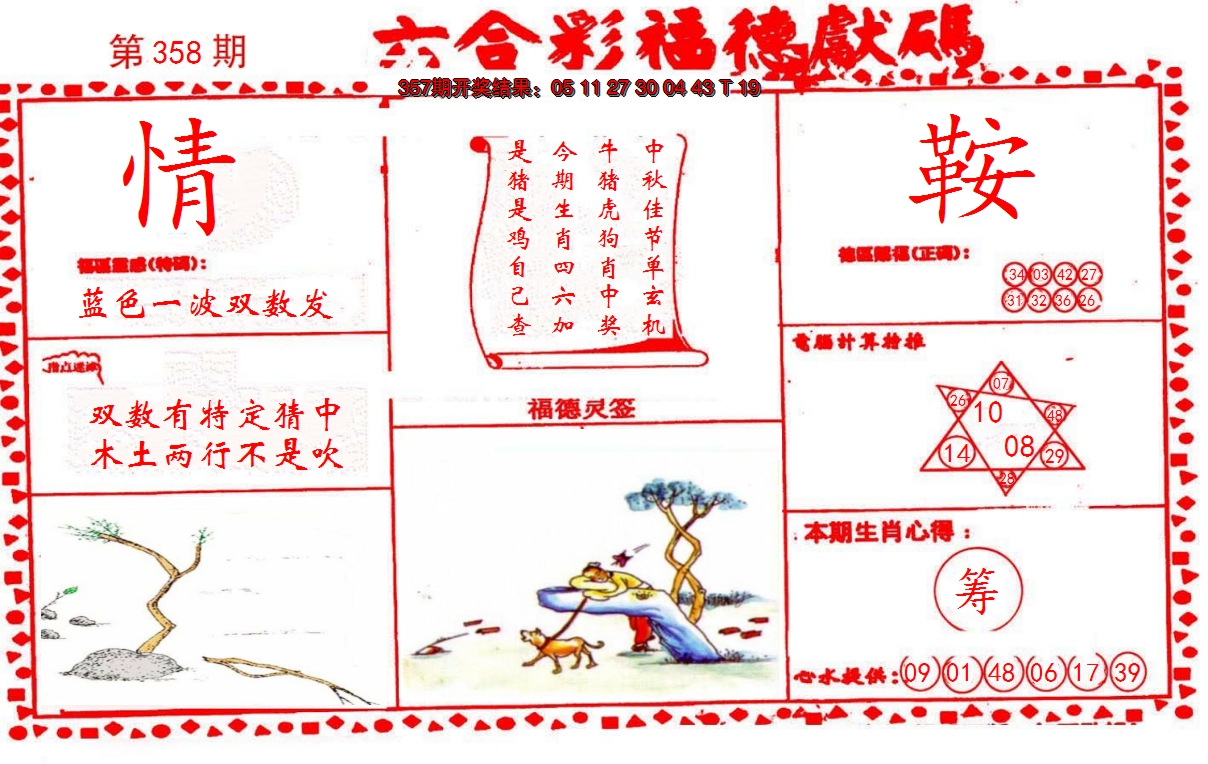 第 358 期
六合彩福德獻碼
357期开奖结果：05 11 27 30 04 43 T 19
情
福區靈感(特碼)：
蓝色一波双数发
指点迷津
双数有特定猜中
木土两行不是吹
中秋佳节单玄机
牛猪虎狗肖中奖
今期生肖四六加
是猪是鸡自己查
福德灵签
鞍
德區賜福(正碼)：
34 03 42 27
31 32 36 26
電腦計算推
07
26 10 48
14 08 29
28
本期生肖心得：
筹
心水提供：09 01 48 06 17 39